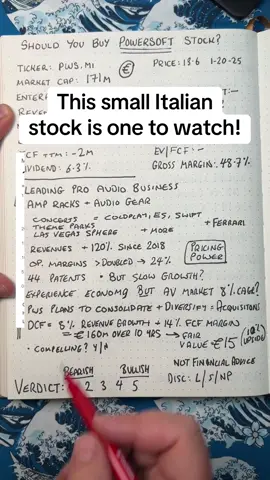 SHOULD YOU BUY POWERSOFT STOCK?
TICKER: PWS.MI
PRICE: 13.6 1-20-25
MARKET CAP: 171M
€
ENTER
REVE
This small Italian
stock is one to watch!
FCF TTM: -2M
EV/FCF: -
DIVIDEND: 6.3%
GROSS MARGIN: 48.7%
LEADING PRO AUDIO BUSINESS
AMP RACKS + AUDIO GEAR
CONCERTS = COLDPLAY, ES, SWIFT
THEME PARKS
+ FERRARI
LAS VEGAS SPHERE
+ MORE
REVENUES + 120% SINCE 2018
PRICING
POWER
OP. MARGINS > DOUBLED → 24%
44 PATENTS • BUT SLOW GROWTH?
EXPERIENCE ECONOMY BUT AV MARKET 8% CAGR?
PWS PLANS TO CONSOLIDATE + DIVERSIFY = ACQUISITIONS
DCF = 5% REVENUE GROWTH + 14% FCF MARGIN
= € 160M OVER 10 YRS → FAIR VALUE €15
(10% UPSIDE)
• COMPELLING? Y/N
BEARISH BULLISH
NOT FINANCIAL ADVICE
VERDICT: 2 3 4 5
DISC: L/S/NP